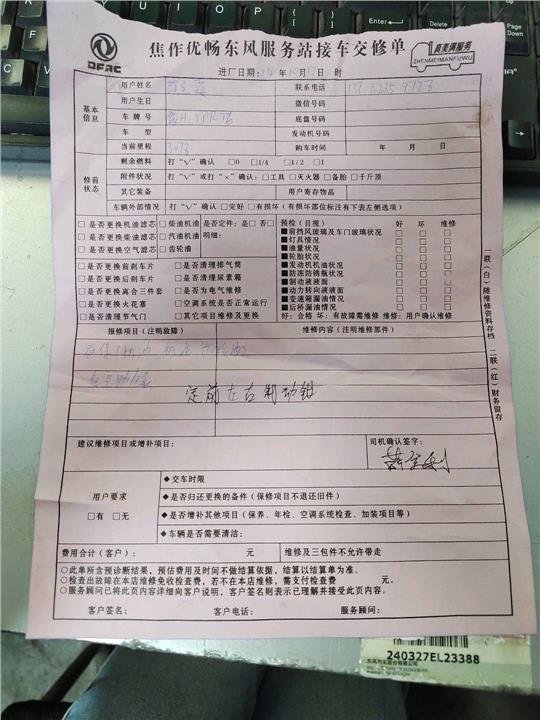 DFAC
焦作优畅东风服务站接车交修单
真美满服务
ZHENMEIMANFUWU
进厂日期: 年 月 日 时
基本信息
用户姓名 联系电话
用户生日 微信号码
车牌号 底盘号
车型 发动机号码
当前里程 购车时间 年 月 日
修前状态
剩余燃料 打"√"确认 □0 □1/4 □1/2 □1
附件状况 打"√"或打"×"确认:□工具 □灭火器 □备胎 □千斤顶
其它装备 用户寄存物品
车辆外部情况 打"√"确认 □完好 □有损坏(有损坏部位标注有下表左侧选项)
□是否更换机油滤芯 □柴油机油 是否定件:□是 □否
□是否更换柴油滤芯 □汽油机油 明细:
□是否更换空气滤芯 □齿轮油
□是否更换前刹车片 □是否清理排气筒
□是否更换后刹车片 □是否清理尿素箱
□是否更换离合三件套 □是否为电气维修
□是否更换火花塞 □空调系统是否正常运行
□是否清理节气门 □其它项目维修及更换
预检(目视) 好 坏 维修
■前挡风玻璃及车门玻璃状况 □ □ □
■灯具情况 □ □ □
■油量状况 □ □ □
■轮胎状况 □ □ □
■发动机机油状况 □ □ □
■防冻防锈瓶状况 □ □ □
■制动液液面 □ □ □
■动力转向液液面 □ □ □
■变速箱漏油情况 □ □ □
■后桥漏油情况 □ □ □
好:合格 坏:有故障需维修 维修:用户确认维修
报修项目(注明故障) 维修内容(注明维修部件)
定前左右制动钳
建议维修项目或增补项目: 司机确认签字:
用户要求
□有 □无
◆交车时限
◆是否归还更换的备件(保修项目不退还旧件)
◆是否增补其他项目(保养、年检、空调系统检查、加装项目等)
◆车辆是否需要清洁:
费用合计(客户): 元 维修及三包件不允许带走
○此单所含预诊断结果,预估费用及时间不做结算依据,结算以结算单为准。
○检查出故障在本店维修免收检查费,若不在本店维修,需支付检查费 元。
○服务顾问已将此页内容详细向客户说明,客户签名则表示已理解并接受此页内容。
客户签名: 客户电话: 服务顾问:
一联(白)随维修资料存档 二联(红)财务留存
240327EL23388
Enter